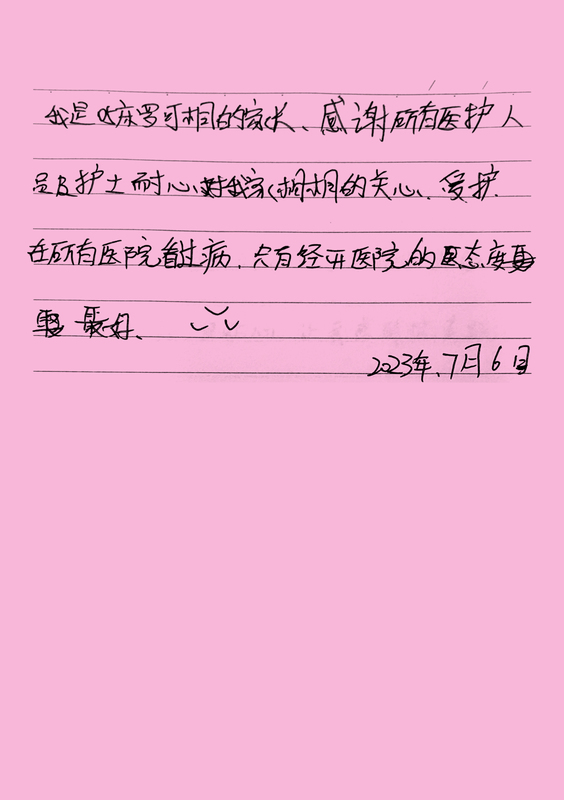 我是05床罗可相的家长、感谢所有医护人
员及护士耐心对我家相相的关心、爱护.
在所有医院看过病.只有经开医院的医态度
最好、
2023年、7月6日